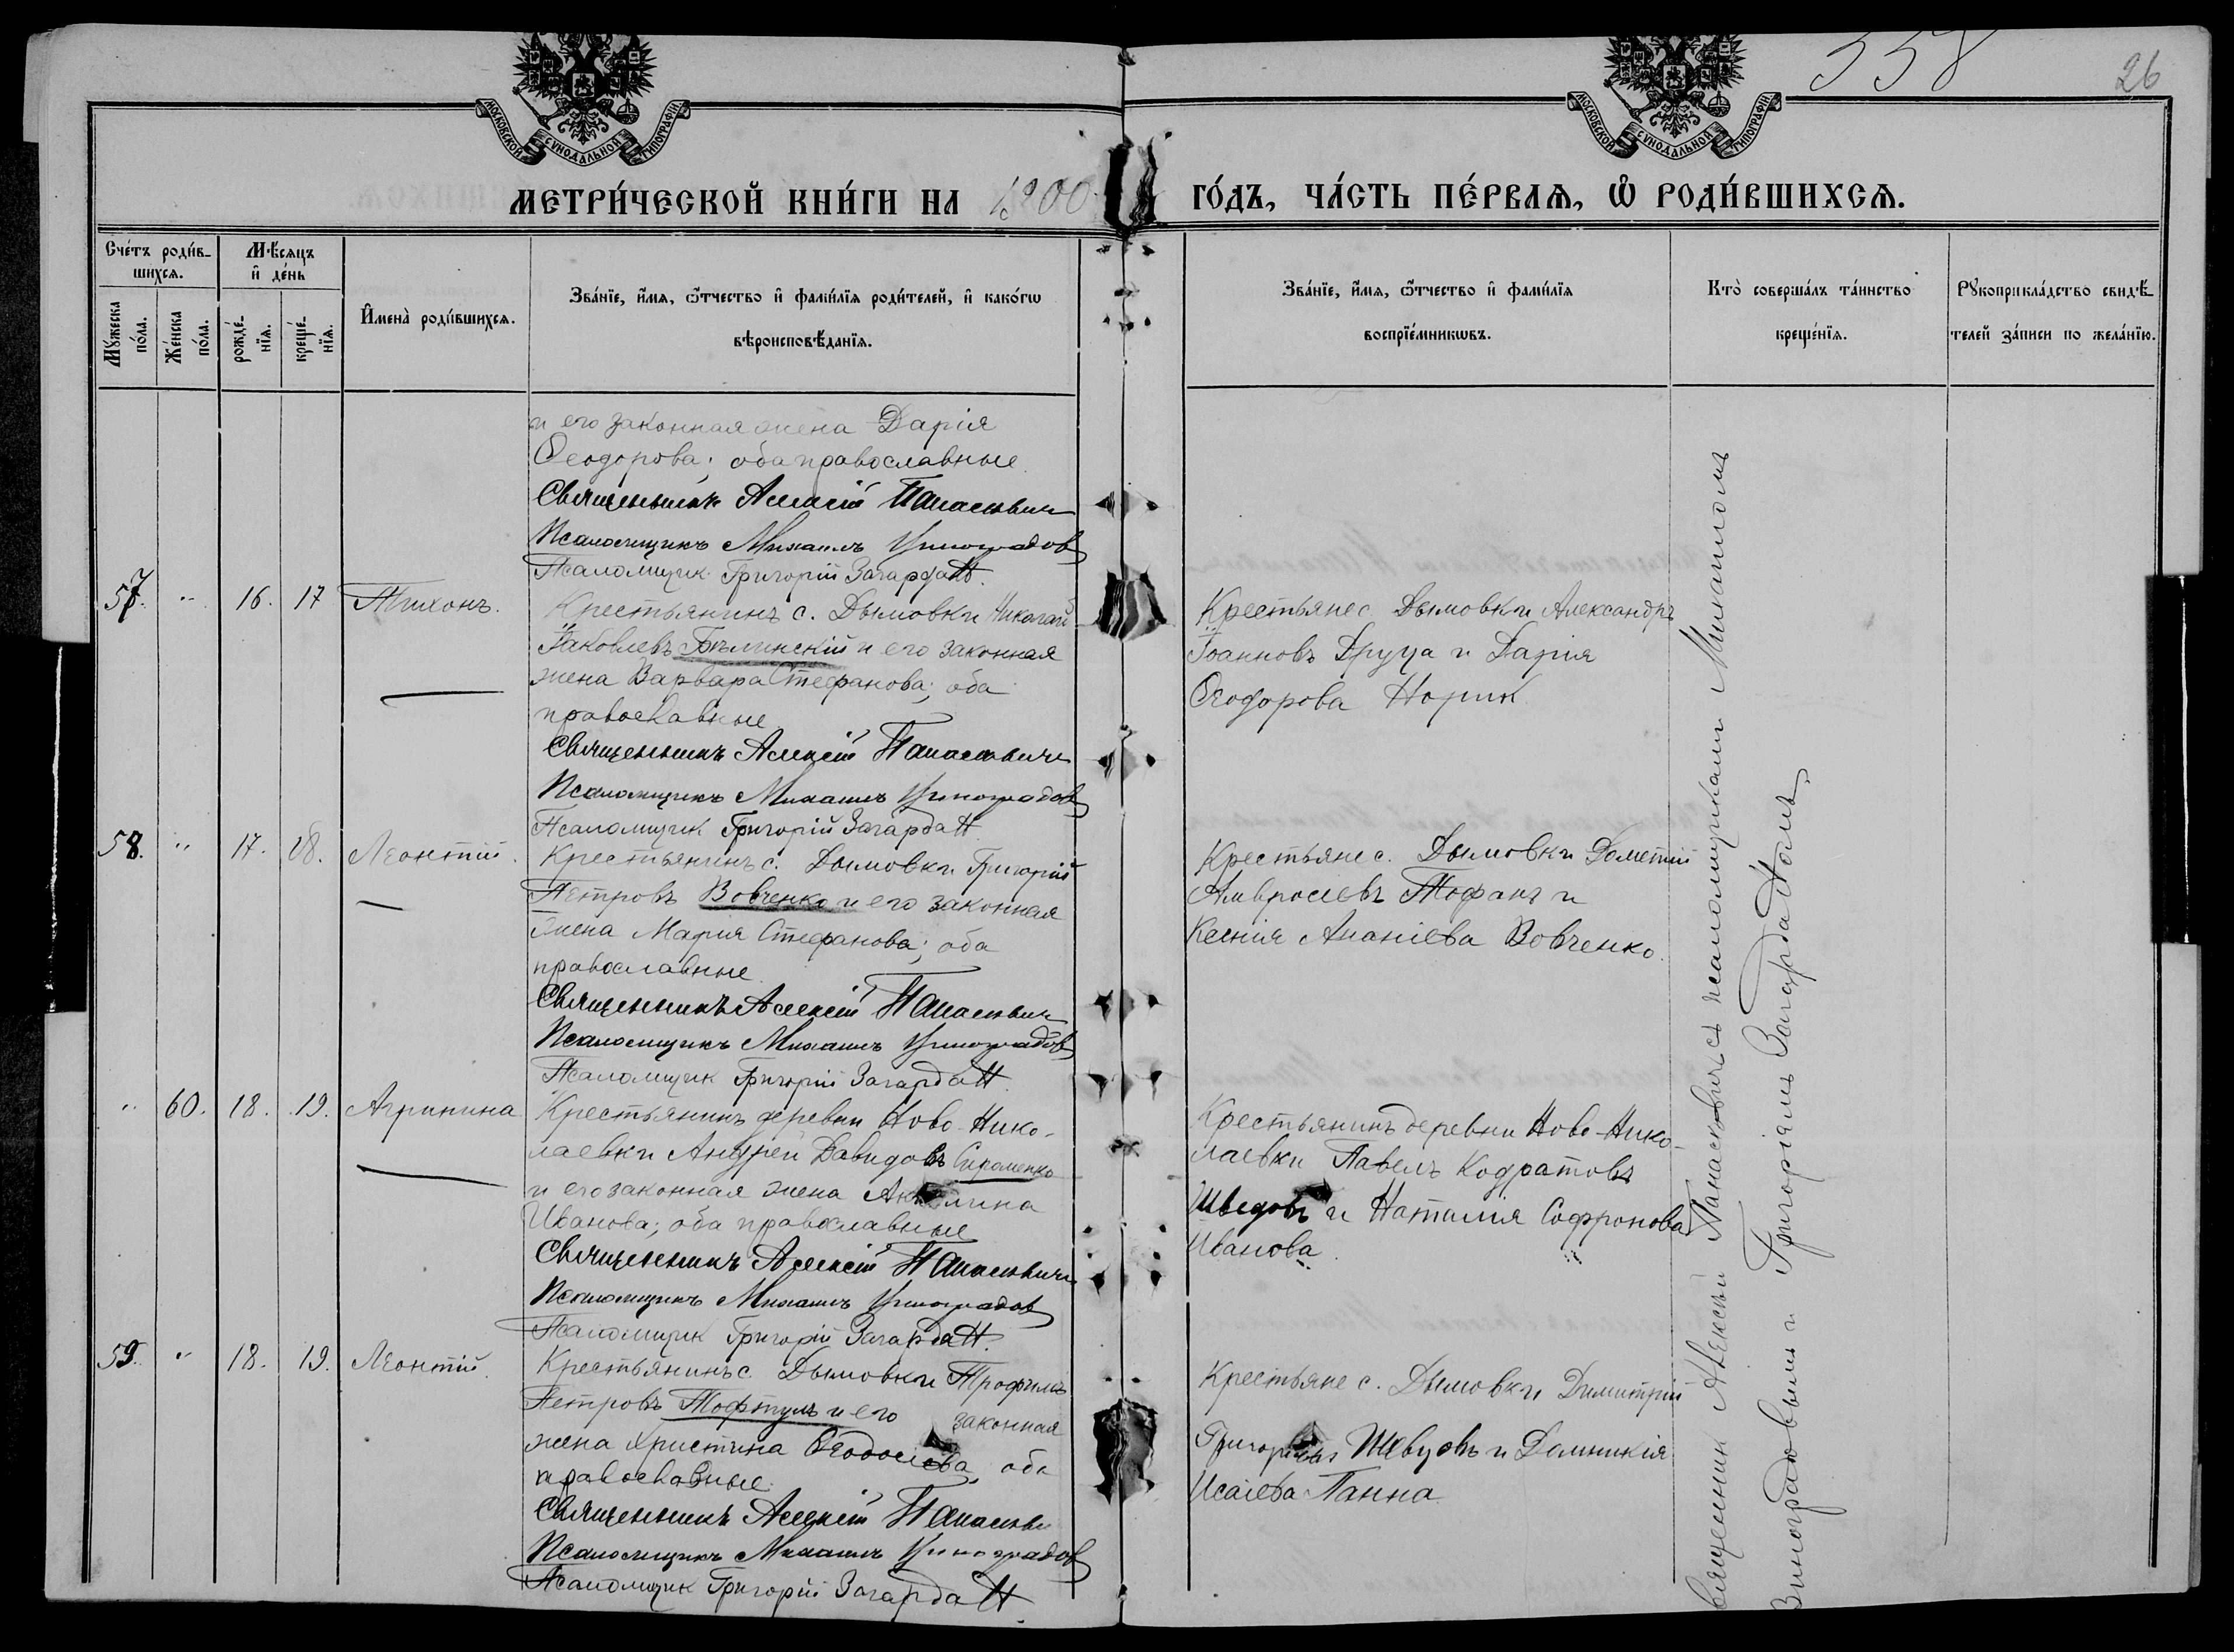 358
26
МОСКОВСКОЙ СѴНОДАЛЬНОЙ ТИПОГРАФІИ.
МОСКОВСКОЙ СѴНОДАЛЬНОЙ ТИПОГРАФІИ.
МЕТРИ́ЧЕСКОЙ КНИ́ГИ НА 1900 ГО́ДЪ, ЧА́СТЬ ПЕ́РВАѦ, Ѡ҆ РОДИ́ВШИХСѦ.
Сче́тъ роди́в-
шихсѧ.
Мѣ́сѧцъ
и҆ де́нь
Мꙋ́жеска
по́ла.
Же́нска
по́ла.
рожде́-
нїѧ.
креще́-
нїѧ.
И҆мена̀ роди́вшихсѧ.
Зва́нїе, и҆́мѧ, ѻ҆́тчество и҆ фами́лїѧ роди́телей, и҆ како́гѡ
вѣроисповѣ́данїѧ.
Зва́нїе, и҆́мѧ, ѻ҆́тчество и҆ фами́лїѧ
воспрїе́мникѡвъ.
Кто̀ соверша́лъ та́инство
креще́нїѧ.
Рꙋкоприкла́дство свидѣ́-
телей за́писи по жела́нїю.
и его законная жена Дарія
Ѳеодорова; оба православные.
Священникъ Алексій Панасевичъ
Псаломщикъ Михаилъ Виноградов
Псаломщик Григорій Загардан.
57. " 16. 17 Тихонъ. Крестьянинъ с. Дымовки Николай
Яковлевъ Бѣлинскій и его законная
жена Варвара Стефанова; оба
православные
Священникъ Алексій Панасевичъ
Псаломщикъ Михаилъ Виноградов
Псаломщик Григорій Загардан
Крестьяне с. Дымовки Александръ
Іоанновъ Друца и Дарія
Ѳеодорова Норик
58. " 17. 18. Леонтій. Крестьянинъ с. Дымовки Григорій
Петровъ Вовченко и его законная
жена Мария Стефанова; оба
православные
Священникъ Алексій Панасевич
Псаломщикъ Михаилъ Виноградов
Псаломщик Григорій Загардан
Крестьяне с. Дымовки Дометій
Амвросіевъ Тофанъ и
Ксенія Ананіева Вовченко.
" 60. 18. 19. Агрипина Крестьянинъ деревни Ново-Нико-
лаевки Андрей Давидовъ Сироменко
и его законная жена Акулина
Иванова; оба православные
Священникъ Алексій Панасевичъ
Псаломщикъ Михаилъ Виноградов
Псаломщик Григорій Загардан.
Крестьянинъ деревни Ново-Нико-
лаевки Павелъ Кодратовъ
Шведовъ и Наталія Софронова
Иванова.
59. " 18. 19. Леонтій. Крестьянинъ с. Дымовки Трофимъ
Петровъ Тофтулъ и его законная
жена Христина Ѳеодосіева оба
православные.
Священникъ Алексій Панасеви
Псаломщикъ Михаилъ Виноградов
Псаломщик Григорій Загардан
Крестьяне с. Дымовки Димитрій
Григорьевъ Шевцовъ и Домникія
Исаіева Панна
вященник Алексѣй Панасевичъ съ псаломщиками Михаиломъ
Виноградовымъ и Григоріемъ Загарданомъ